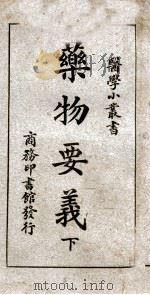 醫學小叢書
藥物要義下
商務印書館發行
www.mtoou.info